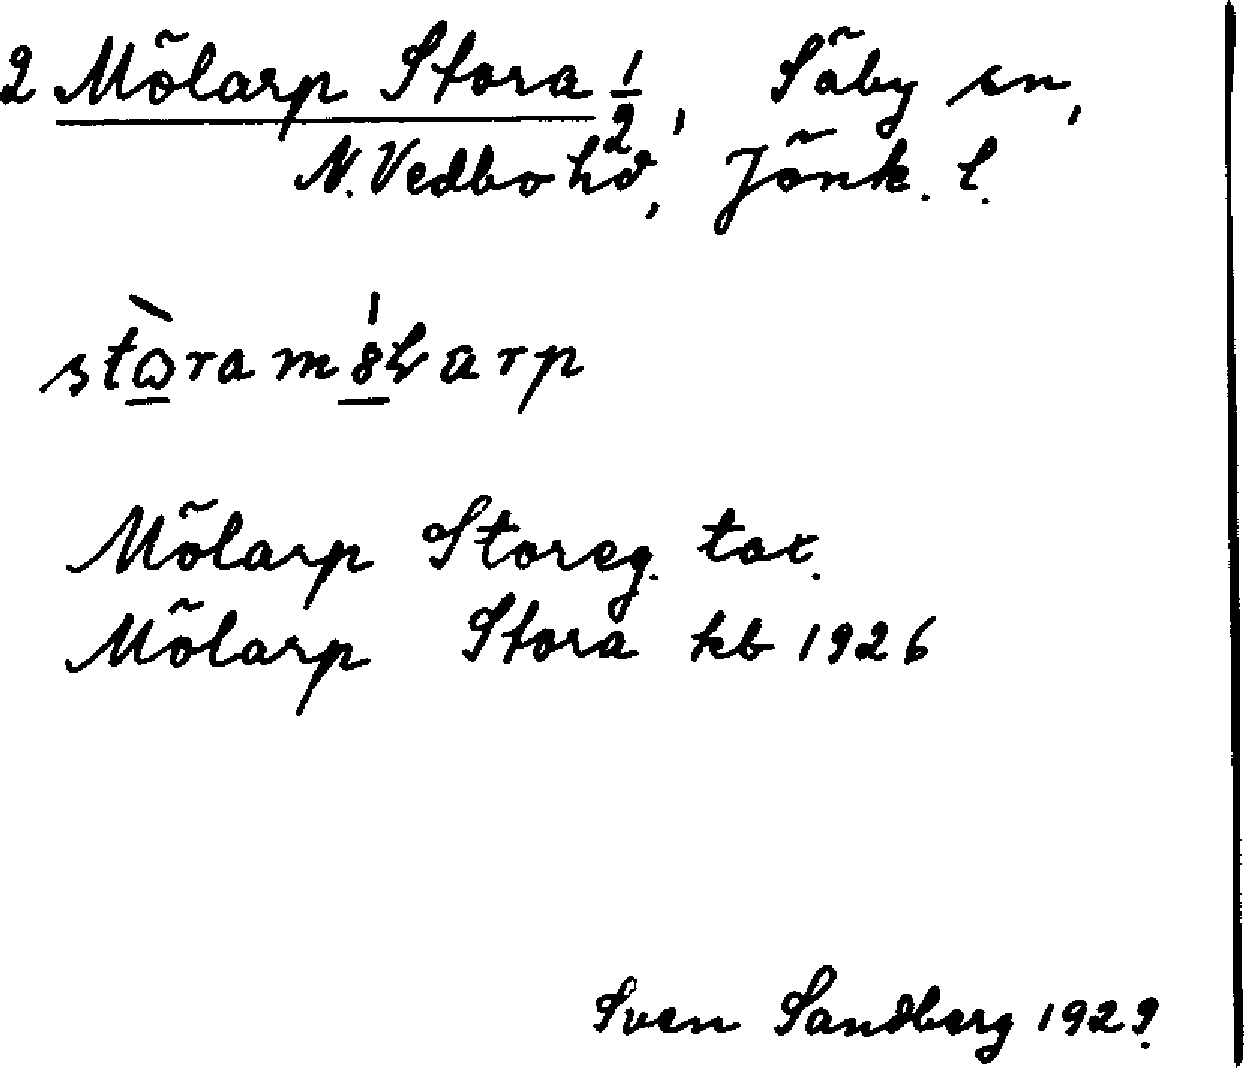 2 Mölarp Stora 1/2, Säby sn,
N. Vedbo hd, Jönk. l.
Mölarp Storeg. tax.
Mölarp Stora kb 1926
Sven Sandberg 1929.